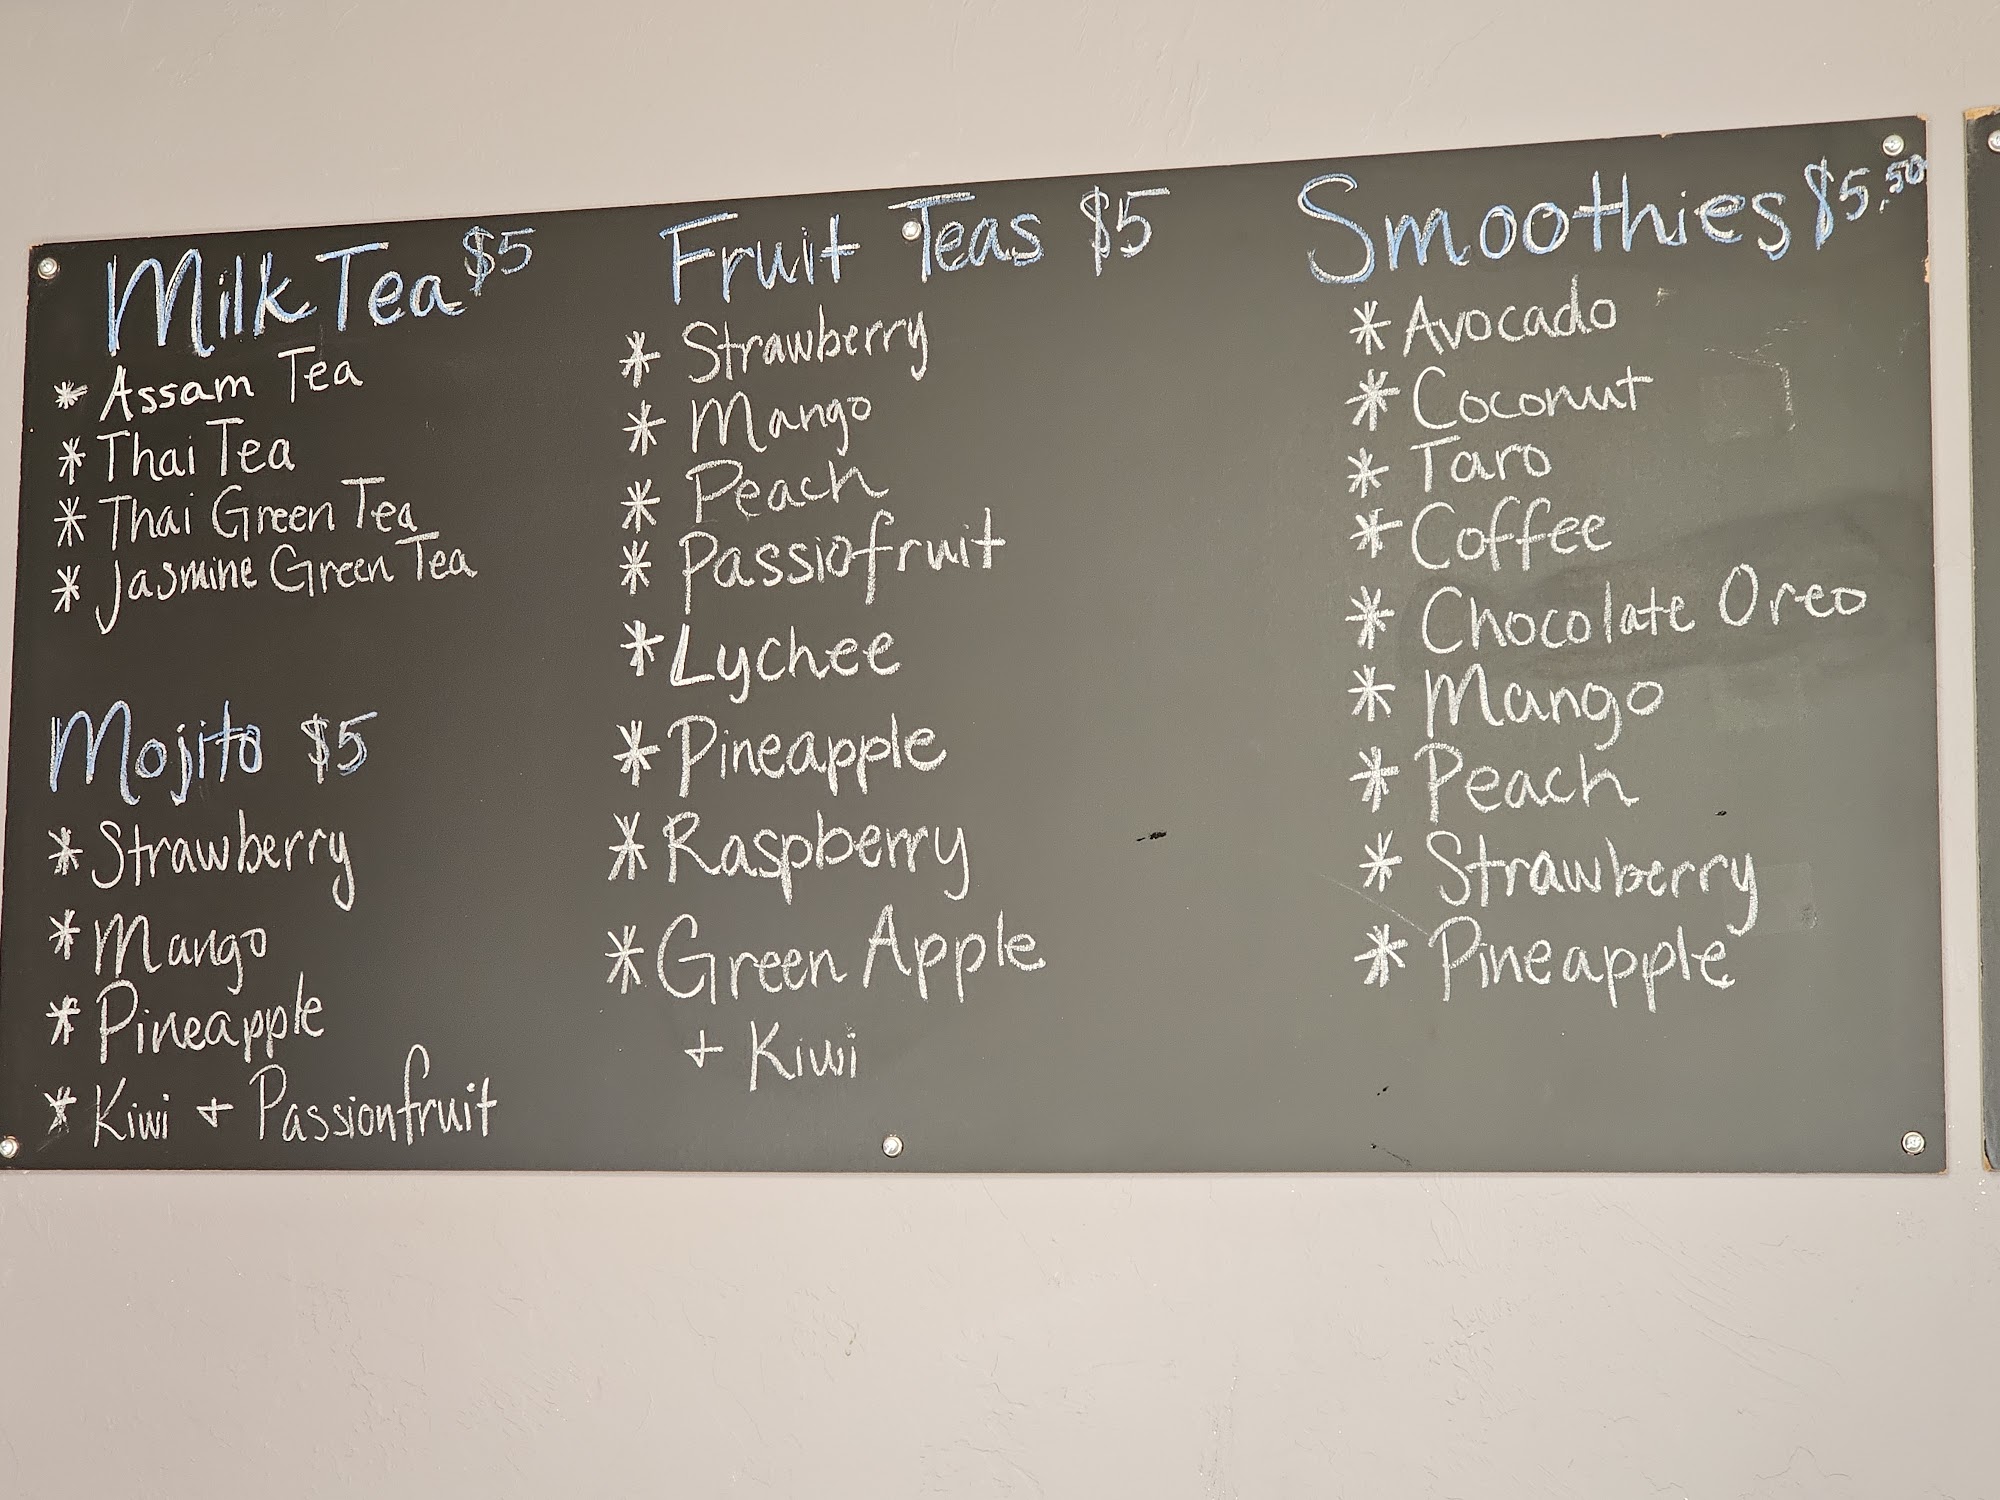 Milk Tea $5
* Assam Tea
* Thai Tea
* Thai Green Tea
* Jasmine Green Tea
Mojito $5
* Strawberry
* Mango
* Pineapple
* Kiwi + Passionfruit
Fruit Teas $5
* Strawberry
* Mango
* Peach
* Passiofruit
* Lychee
* Pineapple
* Raspberry
* Green Apple
+ Kiwi
Smoothies $5.50
* Avocado
* Coconut
* Taro
* Coffee
* Chocolate Oreo
* Mango
* Peach
* Strawberry
* Pineapple